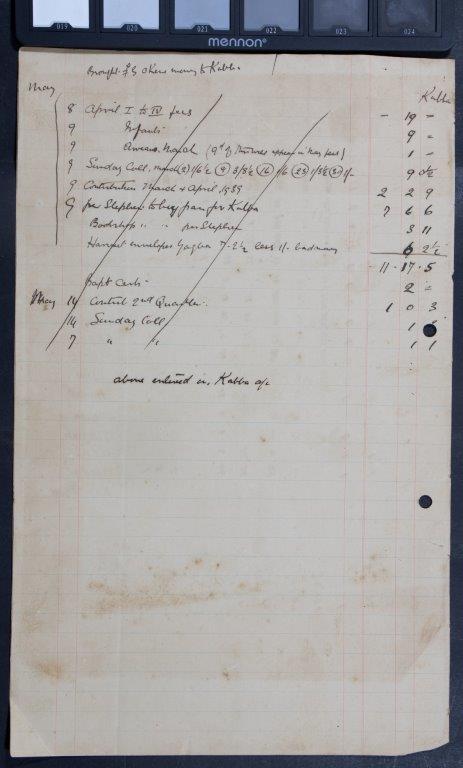 019 020 021 022 023 024
mennon
Brought to Kabba
Kabba
May
8 April I to IV fees - 19 -
9 Infants 9 -
9 Arrears March (9d of this appear in fees) 1 -
9 Sunday Coll. March 2 1/6½ 9 3/8½ 16 1/6 23 1/3½ 1/- 9 0½
9 Contribution March & April 1939 2 2 9
9 per Stephen to buy pan for Kabba 7 6 6
Bookshop " " per Stephen 3 11
Harvest envelopes Gagban 7-2½ less 1/- bad money 6 2½
11-17-5
Bapt Cards 2 -
May 14 Contrib 2nd Quarter. 1 0 3
14 Sunday Coll 1
7 " " 1 1
above entered in Kabba a/c